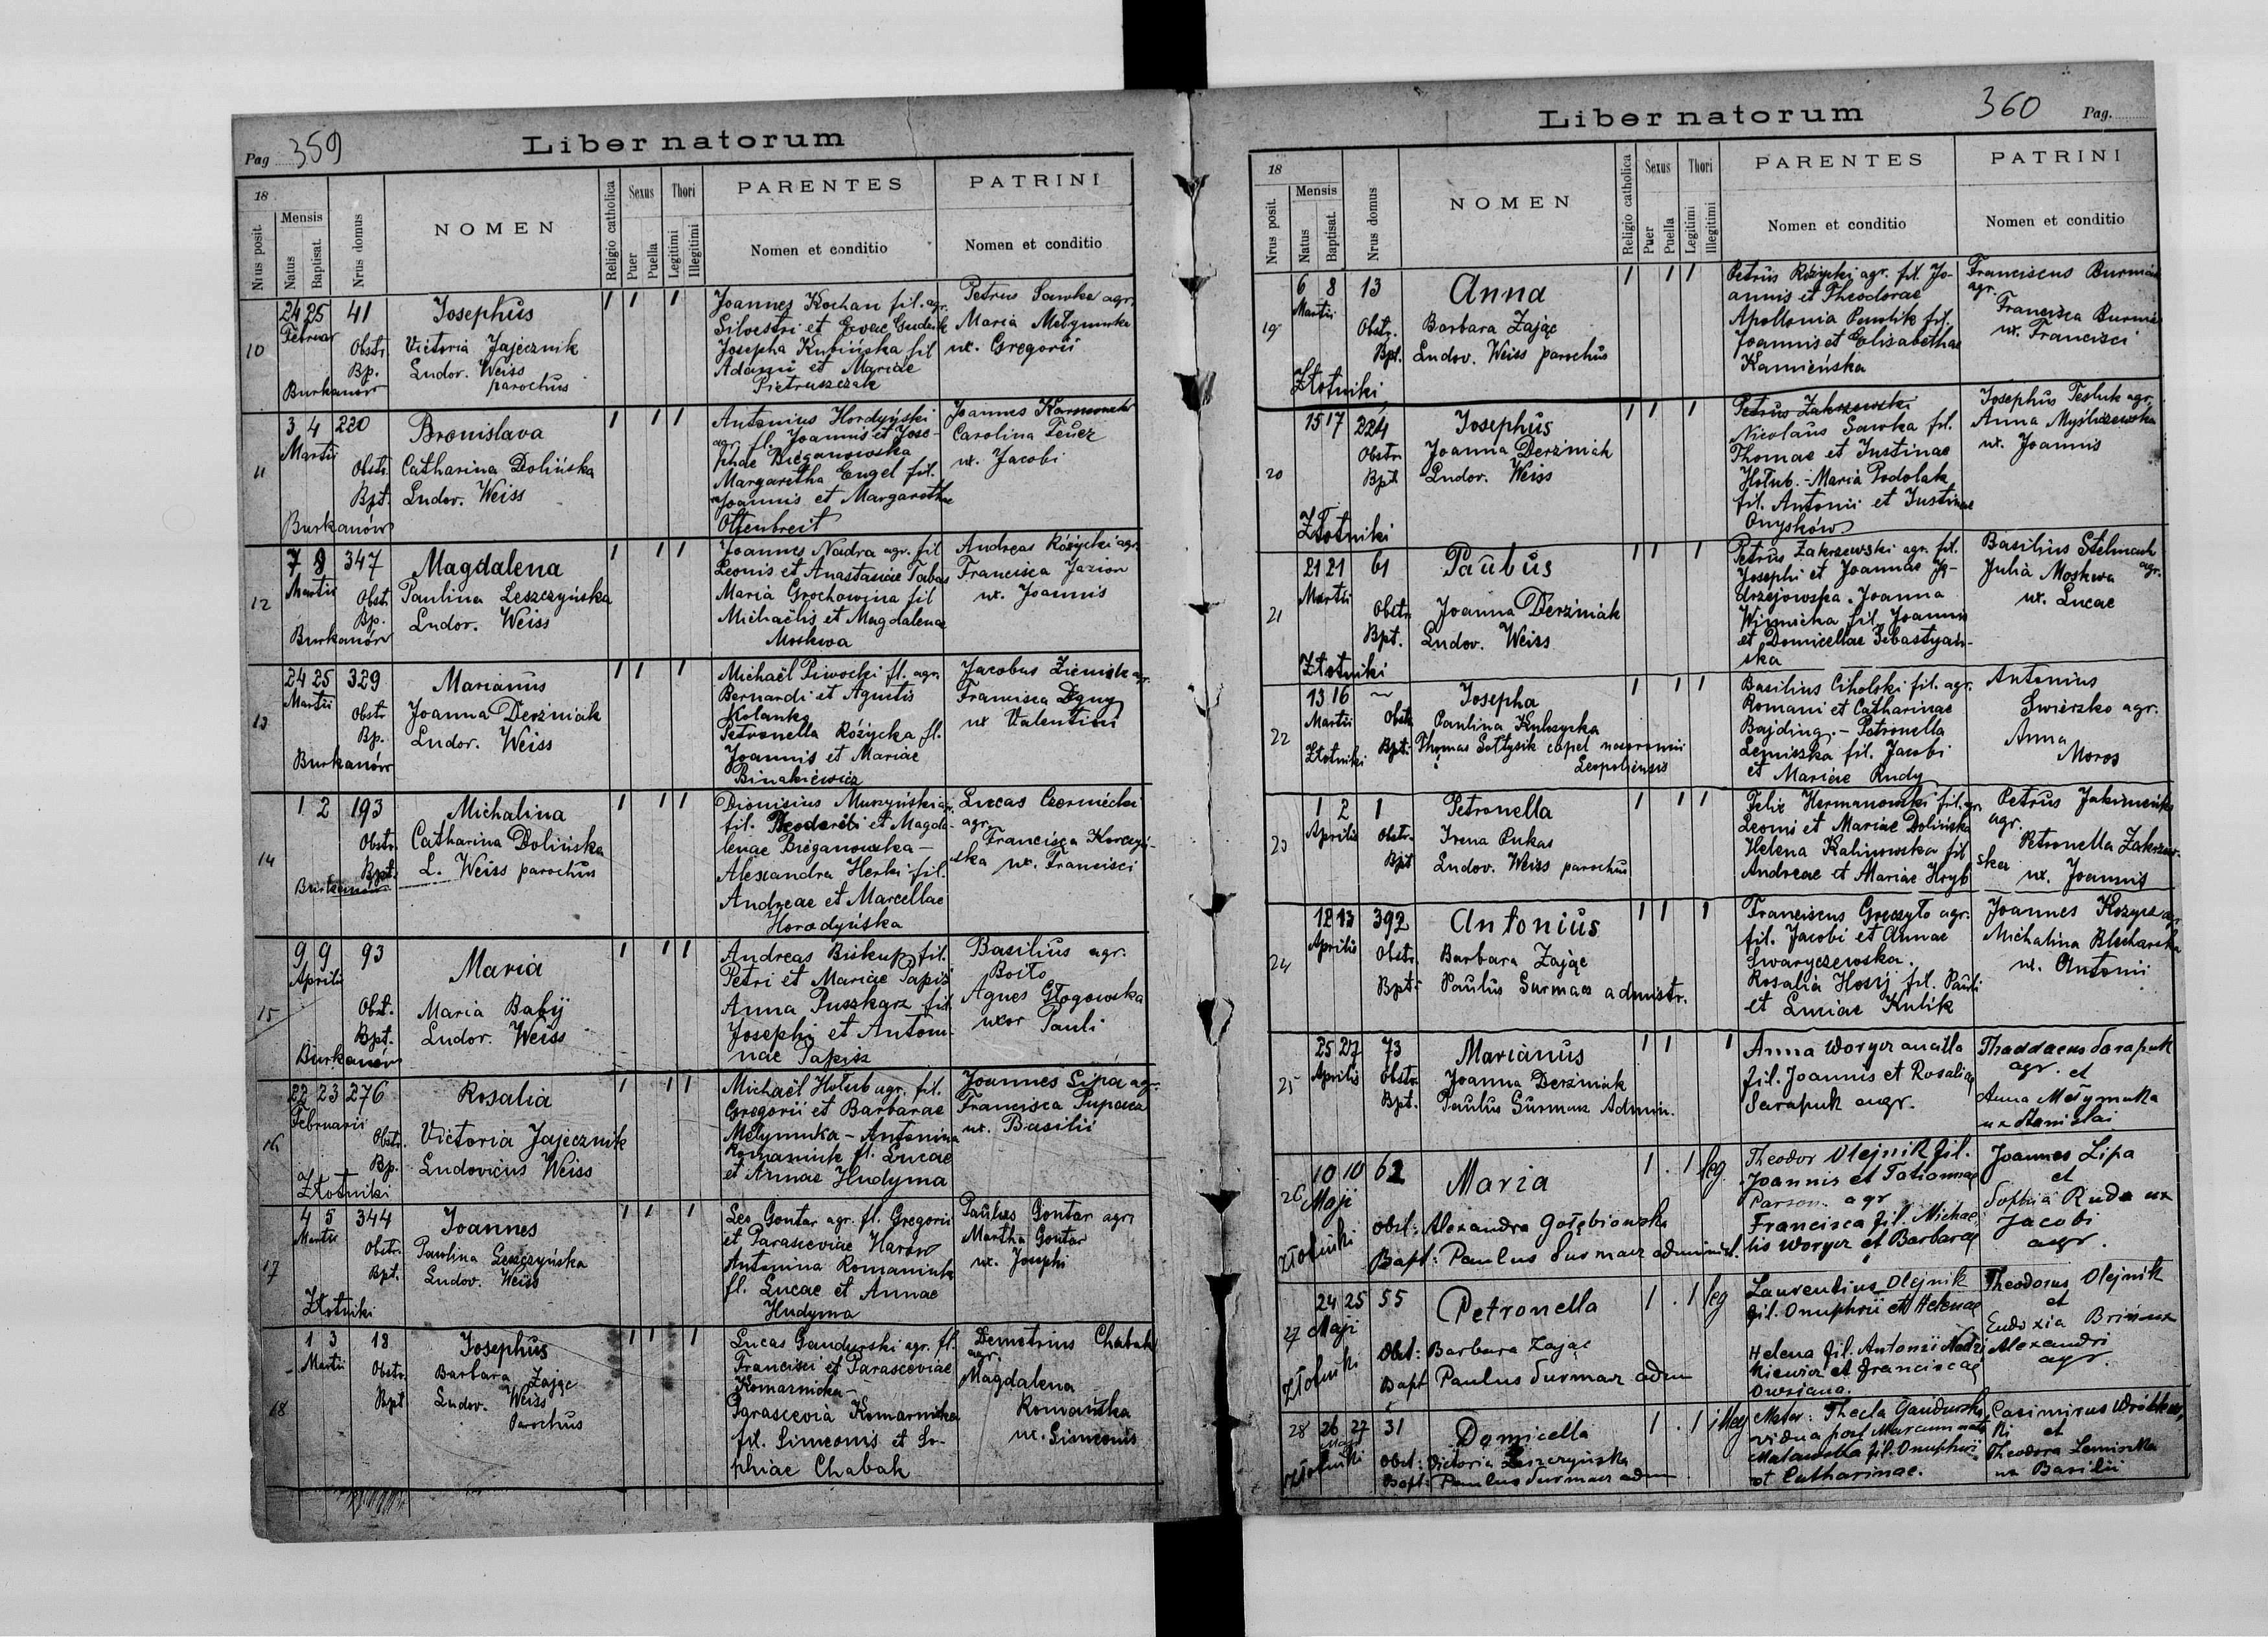 Pag 359
Liber natorum
18
Nrus posit.
Mensis
Natus
Baptisat.
Nrus domus
NOMEN
Religio catholica
Sexus
Puer
Puella
Thori
Legitimi
Illegitimi
PARENTES
Nomen et conditio
PATRINI
Nomen et conditio
10
24 25 41
Februar
Josephus
Obstr. Victoria Jajecznik
Bp. Ludov. Weiss
parochus
Burkanów
1 1 1
Joannes Kochan fil. agr.
Silvestri et Evae
Josepha Kubińska fil
Adami et Mariae
Pietruszczak
Petrus Sawka agr.
Maria Melymuka
ux. Gregorii
11
3 4 220
Martii
Bronislava
Obstr. Catharina Dolińska
Bpt. Ludov. Weiss
Burkanów
1 1 1
Antonius Hordyński
agr. fl. Joannis et Jose-
phae Bieganowska
Margaretha Engel fil.
Joannis et Margarethae
Ottenbreit
Joannes
Carolina
ux. Jacobi
12
7 8 347
Martii
Magdalena
Obstr. Paulina Leszczyńska
Bp. Ludov. Weiss
Burkanów
1 1 1
Joannes Nadra agr. fil
Leonis et Anastasiae Tabas
Maria Grochowina fil
Michaëlis et Magdalenae
Moskwa
Andreas Różycki agr.
Francisca
ux. Joannis
13
24 25 329
Martii
Marianus
Obstr. Joanna Derżniak
Bp. Ludov. Weiss
Burkanów
1 1 1
Michaël Piwocki fl. agr.
Bernardi et Agnetis
Kolanko
Petronella Różycka fl.
Joannis et Mariae
Binakiewicz
Jacobus
Francisca
ux Valentini
14
1 2 193
Michalina
Obstr. Catharina Dolińska
Bpt. L. Weiss parochus
Burkanów
1 1 1
Dionisius Muszyński agr.
fil. et Magda-
lenae Bieganowska –
Alexandra Herki fil.
Andreae et Marcellae
Horodyńska
Lucas Czornicki
agr.
Francisca
ska ux. Francisci
15
9 9 93
Aprilis
Maria
Obst. Maria Babij
Bpt. Ludov. Weiss
Burkanów
1 1 1
Andreas Biskup fil.
Petri et Mariae Papiż
Anna Puszkarz fil.
Josephi et Antoni-
nae Papisz
Basilius agr.
Boito
Agnes Głogowska
uxor Pauli
16
22 23 276
Februarii
Rosalia
Obstr. Victoria Jajecznik
Bp. Ludovicus Weiss
Złotniki
1 1 1
Michaël Hołub agr. fil.
Gregorii et Barbarae
Melymuka – Antonina
Romaniuk fl. Lucae
et Annae Hudyma
Joannes Lipa agr.
Francisca Pupacz
ux. Basilii
17
4 5 344
Martii
Joannes
Obstr. Paulina Leszczyńska
Bpt. Ludov. Weiss
Złotniki
1 1 1
Leo Gontar agr. fl. Gregorii
et Parasceviae Haron
Antonina Romaniuk
fl. Lucae et Annae
Hudyma
Paulus Gontar agr.
Martha Gontar
ux. Josephi
18
1 3 18
Martii
Josephus
Obstr. Barbara Zając
Bpt Ludov. Weiss
Parochus
1 1 1
Lucas Gandurski agr. fl.
Francisci et Parasceviae
Komarnicka –
Parascevia Komarnicka
fil. Simeonis et So-
phiae Chabak
Demetrius Chabak
agr.
Magdalena
Romańska
ux. Simeonis
Liber natorum
360 Pag.
18
Nrus posit.
Mensis
Natus
Baptisat.
Nrus domus
NOMEN
Religio catholica
Sexus
Puer
Puella
Thori
Legitimi
Illegitimi
PARENTES
Nomen et conditio
PATRINI
Nomen et conditio
19
6 8 13
Martii
Anna
Obstr. Barbara Zając
Bpt. Ludov. Weiss parochus
Złotniki
1 1 1
Petrus Różycki agr. fil. Jo-
annis et Theodorae
Apollonia Pawlik fil.
Joannis et Elisabethae
Kamieńska
Franciscus
agr.
Francisca
ux. Francisci
20
15 17 224
Josephus
Obstr. Joanna Derżniak
Bpt Ludov. Weiss
Złotniki
1 1 1
Petrus Zakrzewski
Nicolaus Sawka fil.
Thomae et Justinae
Hołub. – Maria Podolak
fil. Antonii et Justinae
Onysków
Josephus Tesluk agr.
Anna Myśliczewska
ux. Joannis
21
21 21 61
Martii
Paulus
Obstr. Joanna Derżniak
Bpt. Ludov. Weiss
Złotniki
1 1 1
Petrus Zakrzewski agr. fil.
Josephi et Joannae Ję-
drzejowska. Joanna
Winnicka fil. Joannis
et Domicellae Sebastyań-
ska
Basilius Stelmach
agr.
Julia Moskwa
ux. Lucae
22
13 16 ~
Martii
Josepha
Obstr. Paulina Kulczycka
Bpt. Thomas Sołtysik capel
Leopoliensis
Złotniki
1 1 1
Basilius Cikolski fil. agr.
Romani et Catharinae
Bajding. – Petronella
Lemiszka fil. Jacobi
et Mariae Rudy
Antonius
Świerzko agr.
Anna
Moros
23
1 2 1
Aprilis
Petronella
Obstr. Irena Pukas
Bpt Ludov. Weiss parochus
1 1 1
Felix Hermanowski fil. agr.
Leonis et Mariae Dolińska
Helena Kalinowska fil
Andreae et Mariae Hryb
Petrus
agr.
Petronella Zakrzew-
ska ux. Joannis
24
12 13 392
Aprilis
Antonius
Obstr. Barbara Zając
Bpt. Paulus Surmacz administr.
1 1 1
Franciscus agr.
fil. Jacobi et Annae
Swaryczewska.
Rosalia Hosij fil. Pauli
et Luciae Kulik
Joannes
Michalina Blecharska
ux. Antonii
25
25 27 73
Aprilis
Marianus
Obstr. Joanna Derżniak
Bpt. Paulus Surmacz Admin.
1 1 1
Anna Woryer ancilla
fil. Joannis et Rosaliae
Sarapuk agr.
Thaddaeus Sarapuk
agr. et
Anna Mełymuka
ux Stanislai
26
10 10 62
Maji
Maria
Obst: Alexandra Gołębiowska
Bapt: Paulus Surmacz administ.
Złotniki
1 . 1 leg
Theodor Olejnik fil.
Joannis et Tatiannae
agr
Francisca fil. Michae-
lis Woryer et Barbarae
Joannes Lipa
et
Sophia Ruda ux
Jacobi
agr.
27
24 25 55
Maji
Petronella
Obst: Barbara Zając
Bapt Paulus Surmacz adm
Złotniki
1 . 1 leg
Laurentius Olejnik
fil. Onuphrii et Helenae
Helena fil. Antonii
kiewicz et Franciscae
Owsiana.
Theodorus Olejnik
et
Eudoxia
Alexandri
agr.
28
26 27 31
Maji
Domicella
Obst: Victoria Leszczyńska
Bapt: Paulus Surmacz adm
Złotniki
1 . 1 illeg
Mater: Thecla Gandurska
vidua post
fil. Onuphrii
et Catharinae.
Casimirus
ki et
Theodora Lemiszka
ux Basilii